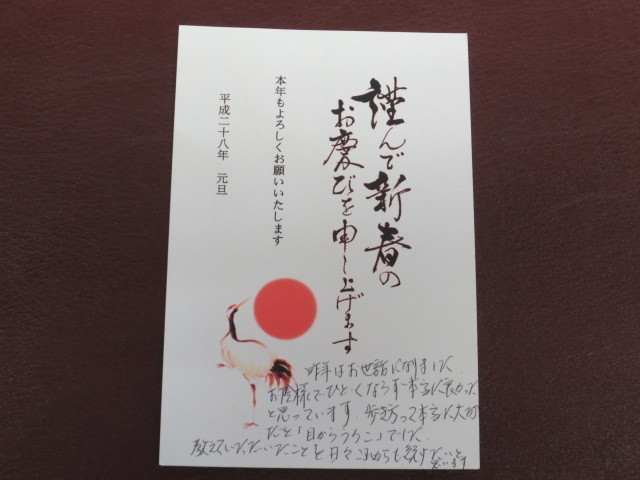 謹んで新春の
お慶びを申し上げます
本年もよろしくお願いいたします
平成二十八年 元旦
昨年はお世話になりました
お陰様でひどくならず本当に良かった
と思っています。歩き方って本当に大切
だと「目からうろこ」でした
教えていただいたことを日々これからも続けたいと
思います